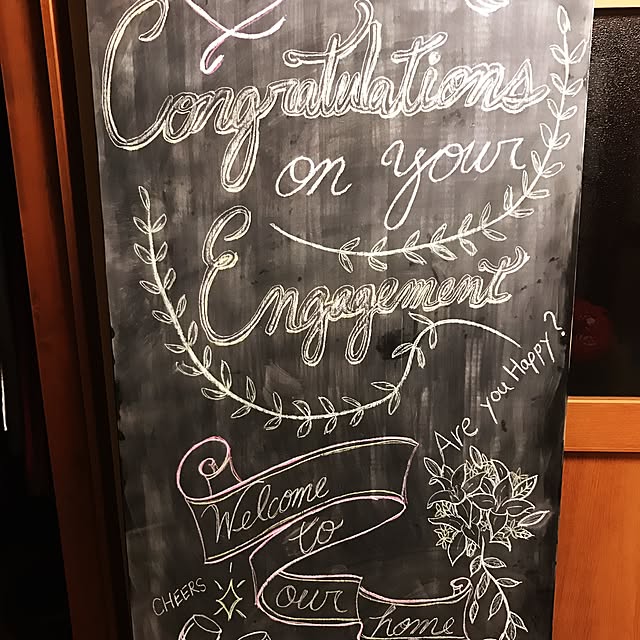 Congratulations
on your
Engagement
Are you Happy?
Welcome
to
our
home
CHEERS